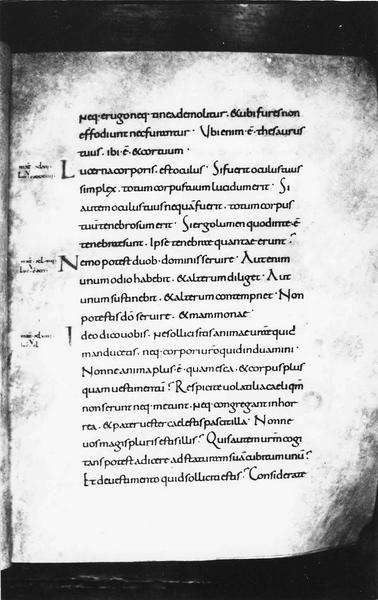 neq· erugo neq· tinea demolitur· & ubi fures non
effodiunt nec furantur· Ubi enim ē· thesaurus
tuus· ibi ē· & cor tuum·
Lucerna corporis· est oculus· Si fuerit oculus tuus
simplex· totum corpus tuum lucidum erit· Si
autem oculus tuus nequā fuerit· totum corpus
tuū tenebrosum erit· Si ergo lumen quod in te ē·
tenebrae sunt· Ipse tenebrae quantae erunt?
Nemo potest duob· dominis seruire· Aut enim
unum odio habebit· & alterum diliget· Aut
unum sustinebit· & alterum contempnet· Non
potestis dō seruire· & mammonae·
Ideo dico uobis· ne solliciti sitis animae urae quid
manducetis· neq· corpori uro quid induamini·
Nonne anima plus ē· quam esca· & corpus plus
quam uestimentū? Respicite uolatilia caeli qm
non serunt neq· metunt· neq· congregant in hor
rea· & pater uester caelestis pascit illa· Nonne
uos magis pluris estis illis? Quis autem urm cogi
tans potest adicere ad staturam suā cubitum unū?
Et de uestimento quid solliciti estis? Considerate